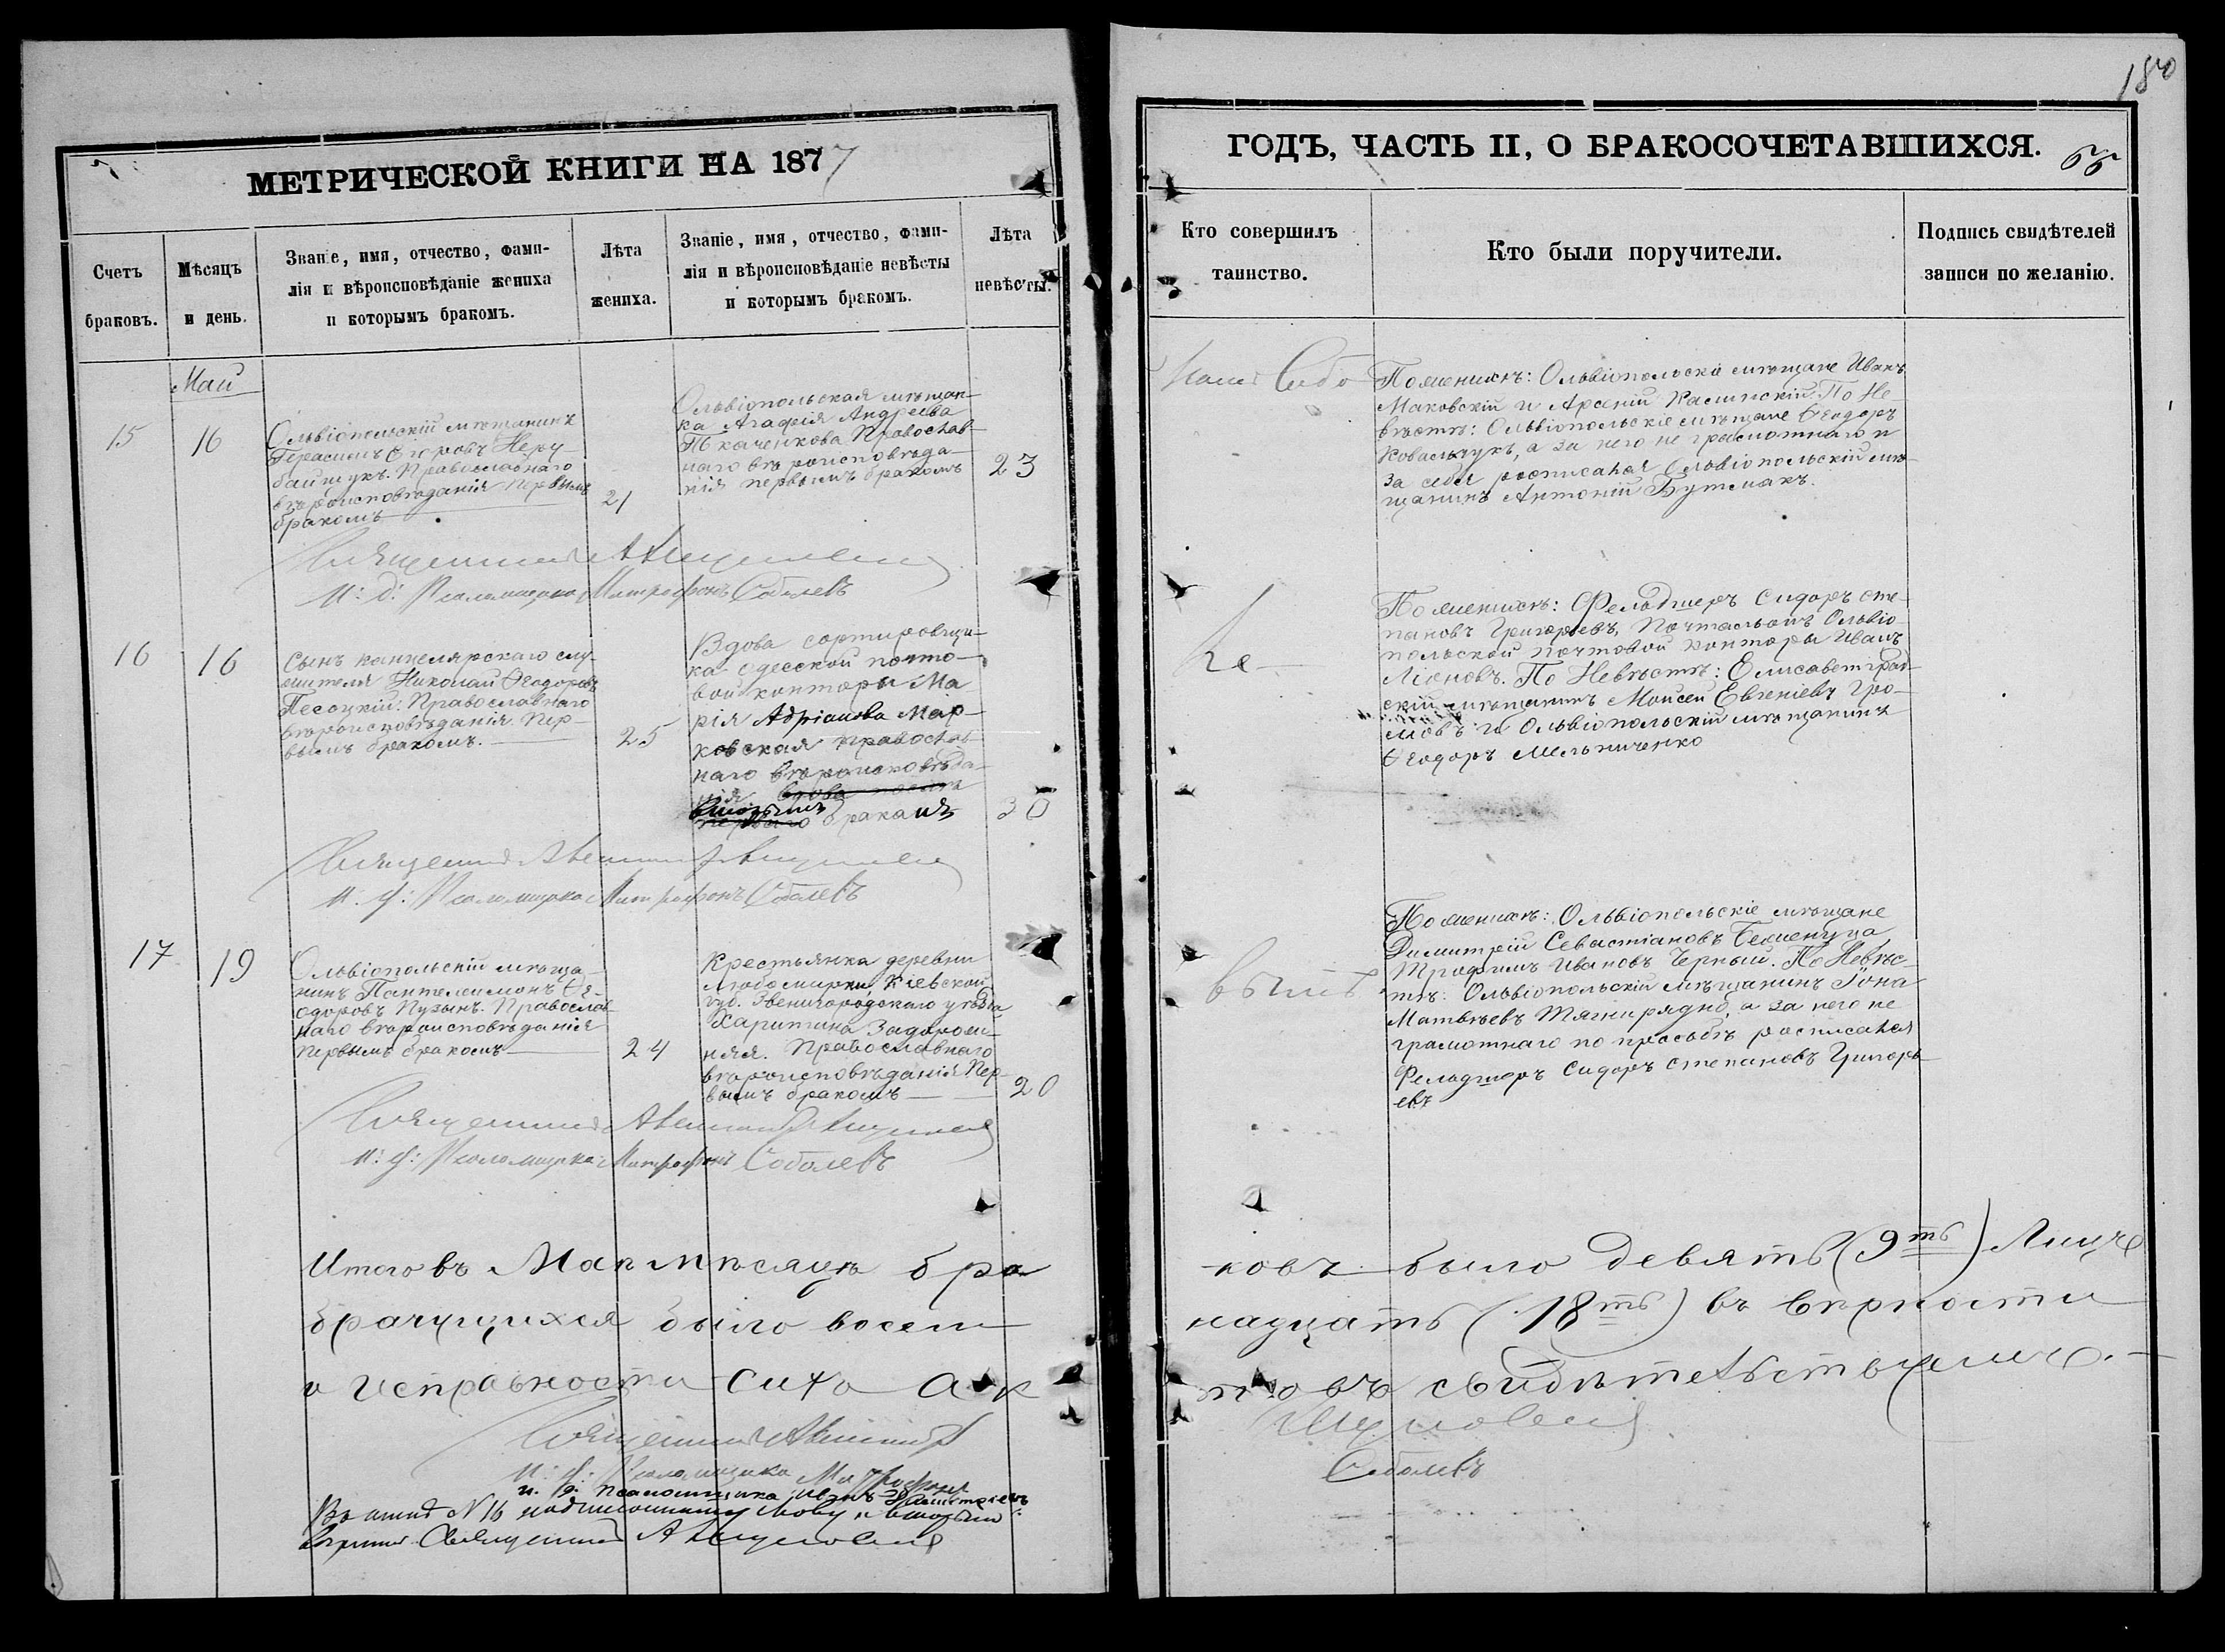 180
МЕТРИЧЕСКОЙ КНИГИ НА 1877
ГОДЪ, ЧАСТЬ II, О БРАКОСОЧЕТАВШИХСЯ.
Счетъ
браковъ.
Мѣсяцъ
и день.
Званіе, имя, отчество, фами-
лія и вѣроисповѣданіе жениха
и которымъ бракомъ.
Лѣта
жениха.
Званіе, имя, отчество, фами-
лія и вѣроисповѣданіе невѣсты
и которымъ бракомъ.
Лѣта
невѣсты.
Кто совершилъ
таинство.
Кто были поручители.
Подпись свидѣтелей
записи по желанію.
Май
15
16
Ольвіопольскій мѣщанинъ
Герасимъ
байщукъ. Православнаго
вѣроисповѣданія первымъ
бракомъ
21
Ольвіопольская мѣщан-
ка Агафія Андреева
Ткаченкова Православ-
наго вѣроисповѣда-
нія первымъ бракомъ
23
По женихѣ: Ольвіопольскіе мѣщане Иванъ
Маковскій и Арсеній Калинскій. По Не-
вѣстѣ: Ольвіопольскіе мѣщане Ѳеодоръ
Ковальчукъ, а за него не грамотнаго и
за себя росписался Ольвіопольскій мѣ-
щанинъ Антоній Бутмакъ.
Священникъ
и: д: Псаломщика Митрофанъ Соболевъ
16
16
Сынъ канцелярскаго слу-
жителя Николай Ѳеодоровъ
Песоцкій: Православнаго
вѣроисповѣданія. Пер-
вымъ бракомъ.
25
Вдова сортировщи-
ка Одесской почто-
вой конторы Ма
рія Адріанова Мар-
ковская православ
наго вѣроисповѣда-
нія
вторымъ
перваго брака
30
По женихѣ: Фельдшеръ Сидоръ Сте-
пановъ Григорьевъ, Почтальонъ Ольвіо-
польской почтовой конторы Иванъ
Ліоновъ. По Невѣстѣ: Елисаветград-
скій мѣщанинъ Моисей Евгеніевъ Гро-
мовъ и Ольвіопольскій мѣщанинъ
Ѳеодоръ Мельниченко
Священникъ
Псаломщика Митрофанъ Соболевъ
17
19
Ольвіопольскій мѣща-
нинъ Пантелеимонъ Ѳе-
одоровъ Пузынъ. Православ
наго вѣроисповѣданія
Первымъ бракомъ
24
Крестьянка деревни
Любомирки, Кіевской
губ. Звенигородскаго уѣзда
Харитина
няя. Православнаго
вѣроисповѣданія Пер
вымъ бракомъ
20
По женихѣ: Ольвіопольскіе мѣщане
Димитрій Севастіановъ
Трофимъ Ивановъ Черный. По Невѣс-
тѣ: Ольвіопольскій мѣщанинъ Іона
Матвѣевъ Тягнирядно, а за него не
грамотнаго по прозьбѣ росписался
Фельдшеръ Сидоръ Степановъ Григорь-
евъ
Священникъ
Псаломщика Митрофанъ Соболевъ
Итого въ Маѣ мѣсяцѣ бра
ковъ было девять (9ть) Лицъ
брачущихся было восем
надцать (18ть) въ вѣрности
и исправности сихъ ак
товъ свидѣтельствуемъ.
Священникъ
Псаломщика Митрофанъ
Соболевъ
и. д. Псаломщика
Въ актѣ N 16
Священникъ